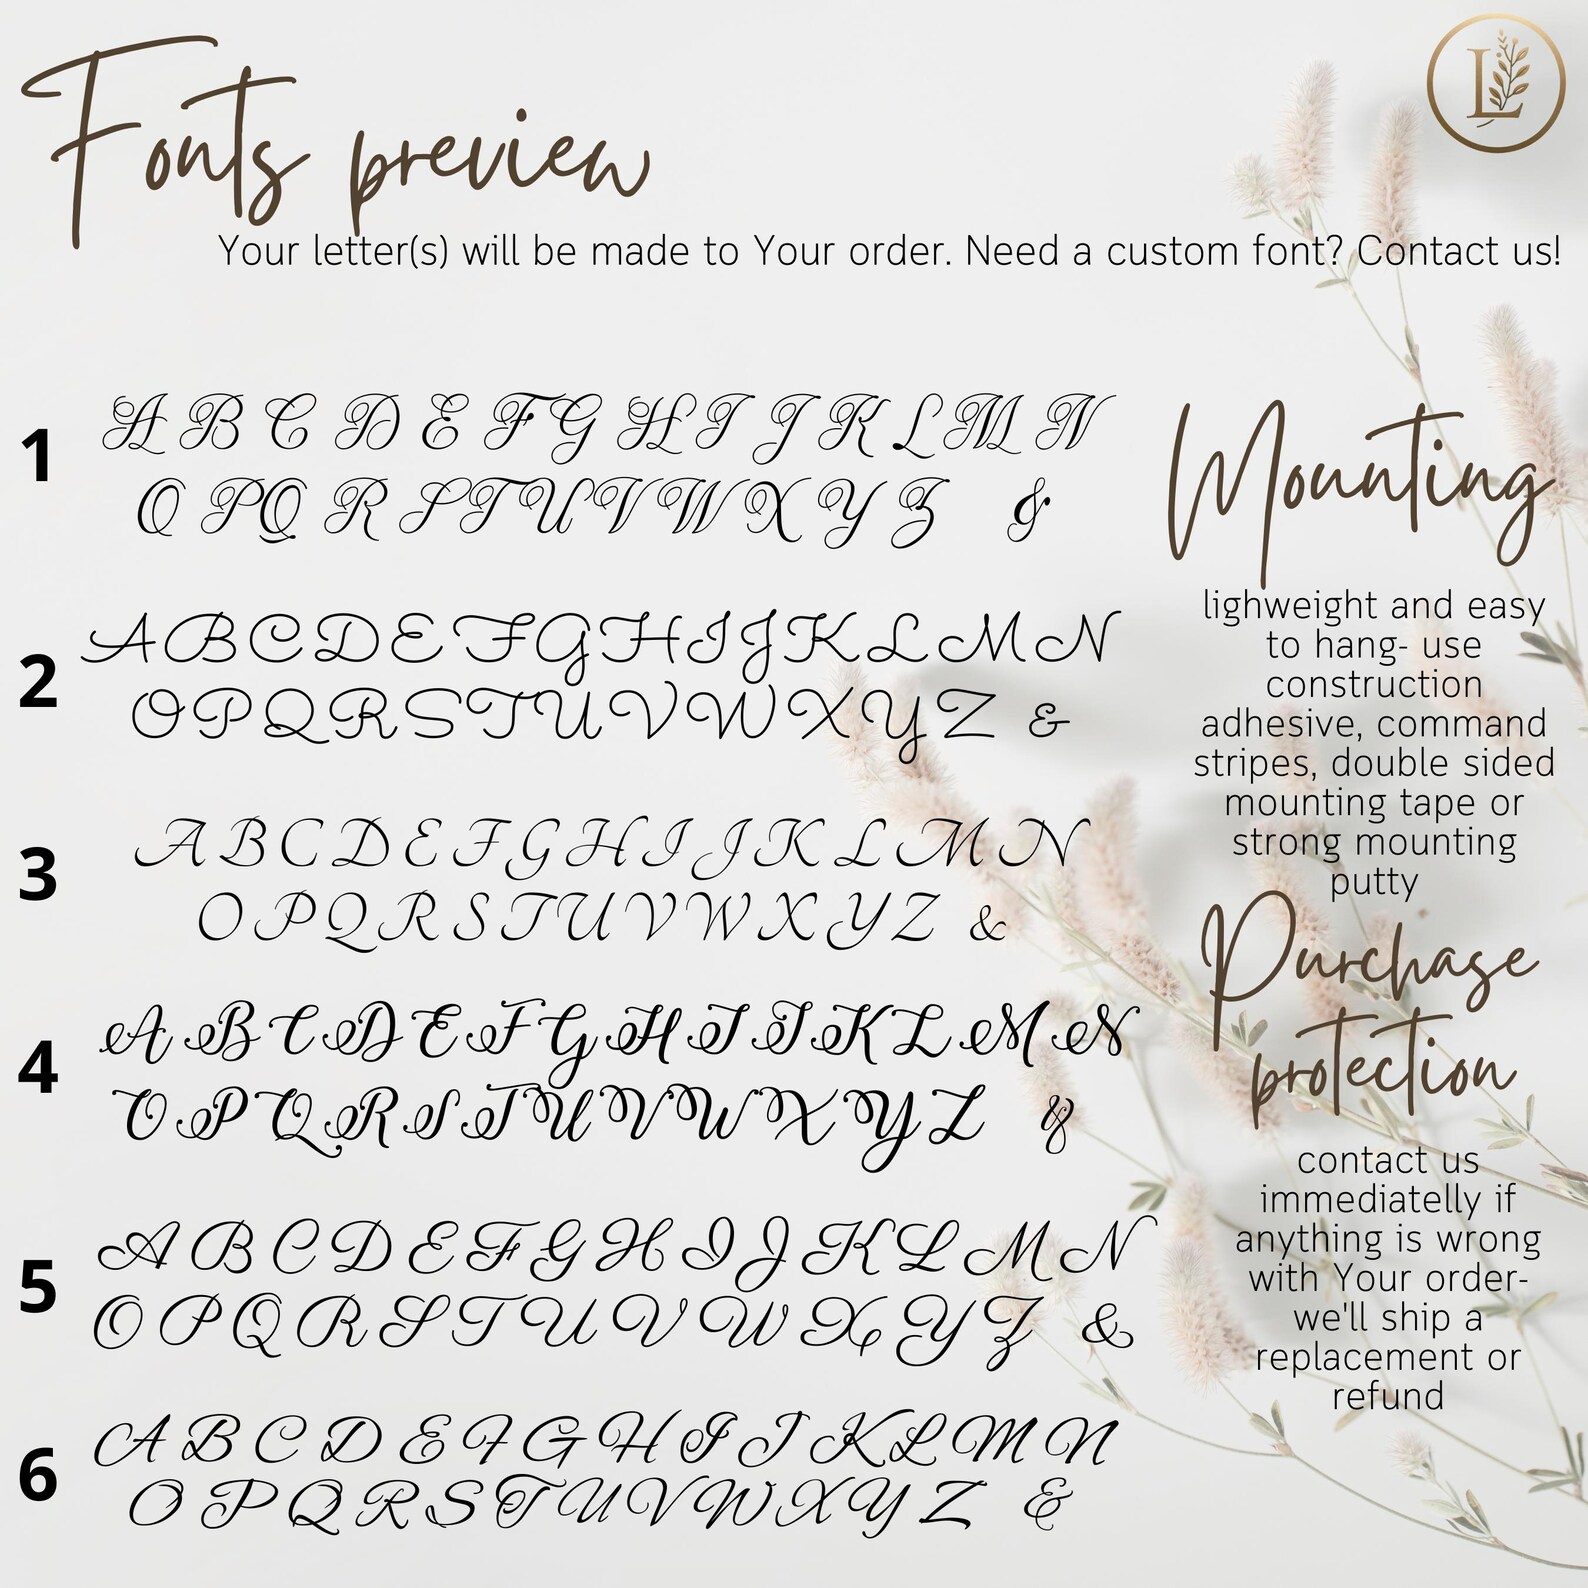 L
Fonts preview
Your letter(s) will be made to Your order. Need a custom font? Contact us!
1
A B C D E F G H I J K L M N
O P Q R S T U V W X Y Z &
2
A B C D E F G H I J K L M N
O P Q R S T U V W X Y Z &
3
A B C D E F G H I J K L M N
O P Q R S T U V W X Y Z &
4
A B C D E F G H I J K L M N
O P Q R S T U V W X Y Z &
5
A B C D E F G H I J K L M N
O P Q R S T U V W X Y Z &
6
A B C D E F G H I J K L M N
O P Q R S T U V W X Y Z &
Mounting
lighweight and easy
to hang- use
construction
adhesive, command
stripes, double sided
mounting tape or
strong mounting
putty
Purchase
protection
contact us
immediatelly if
anything is wrong
with Your order-
we'll ship a
replacement or
refund